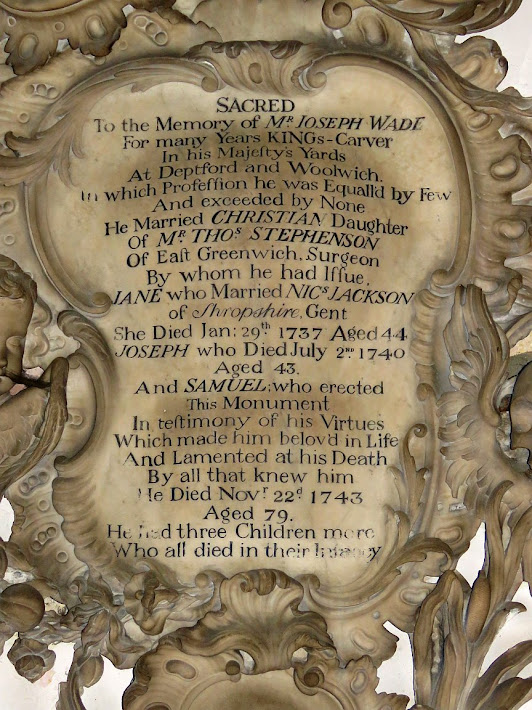 SACRED
To the Memory of Mr. IOSEPH WADE
For many Years KINGs-Carver
In his Majeſty's Yards
At Deptford and Woolwich.
In which Profeſſion he was Equall'd by Few
And exceeded by None
He Married CHRISTIAN Daughter
Of Mr. THOs. STEPHENSON
Of Eaſt Greenwich, Surgeon
By whom he had Iſſue,
JANE who Married NICs. JACKSON
of Shropshire, Gent
She Died Jan: 29th 1737 Aged 44
JOSEPH who Died July 2nd 1740
Aged 43.
And SAMUEL; who erected
This Monument
In teſtimony of his Virtues
Which made him belov'd in Life
And Lamented at his Death
By all that knew him
He Died Novr 22d 1743
Aged 79.
He had three Children more
Who all died in their Infancy